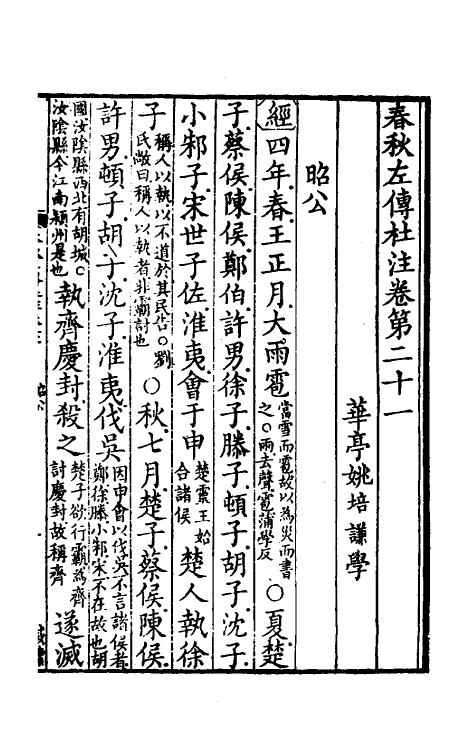 春秋左傳杜注卷第二十一
華亭姚培謙學
昭公
經四年春王正月大雨雹當雪而雹故以為災而書之○雨去聲雹蒲學反○夏楚
子蔡侯陳侯鄭伯許男徐子滕子頓子胡子沈子
小邾子宋世子佐淮夷會于申楚靈王始合諸侯楚人執徐
子稱人以執以不道於其民告○劉氏敞曰稱人以執者非霸討也○秋七月楚子蔡侯陳侯
許男頓子胡子沈子淮夷伐吳因申會以伐吳不言諸侯者鄭徐滕小邾宋不在故也胡
國汝陰縣西北有胡城○汝陰縣今江南潁州是也執齊慶封殺之楚子欲行霸為齊討慶封故稱齊遂滅